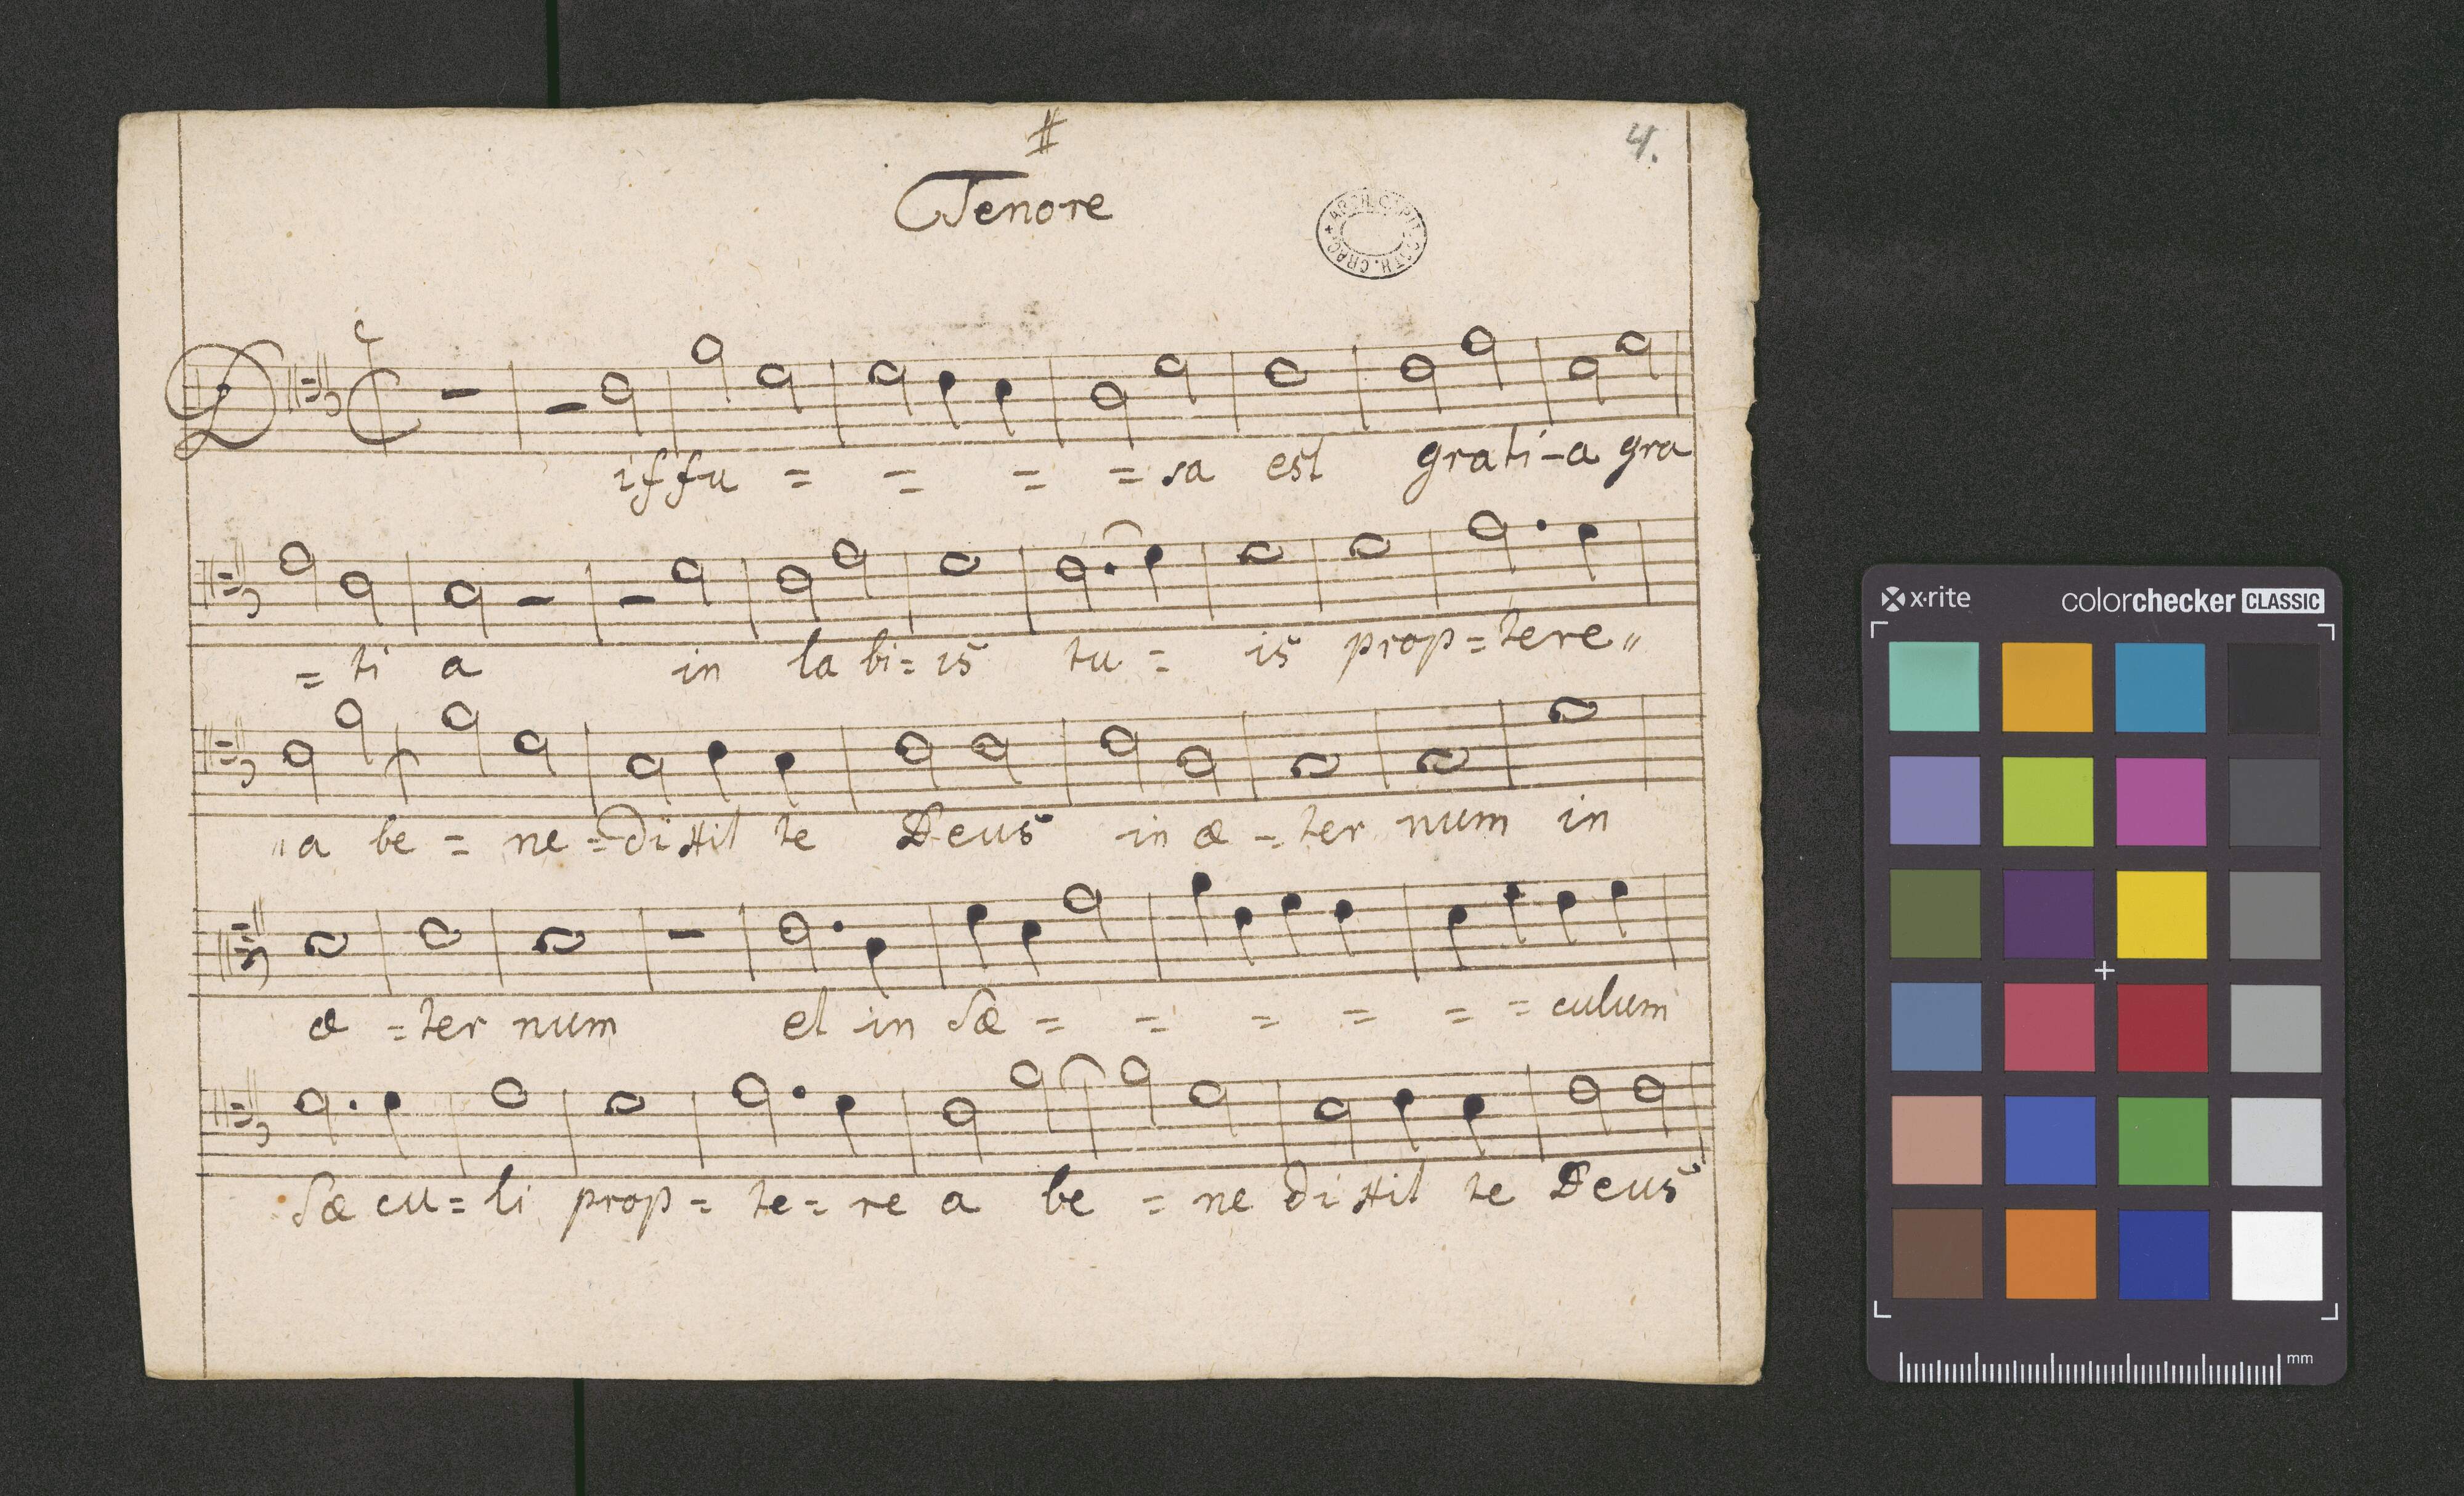 #
4.
Tenore
ARCH. CAPIT. CATH. CRAC.
Diffu = = = = sa est grati-a gra
= ti a in la bi= is tu = is prop=tere"
"a be = ne =dixit te Deus in æ =ter num in
æ =ter num et in sæ = = = = = = culum
sæ cu= li prop= te= re a be = ne dixit te Deus
x·rite
colorchecker CLASSIC
mm